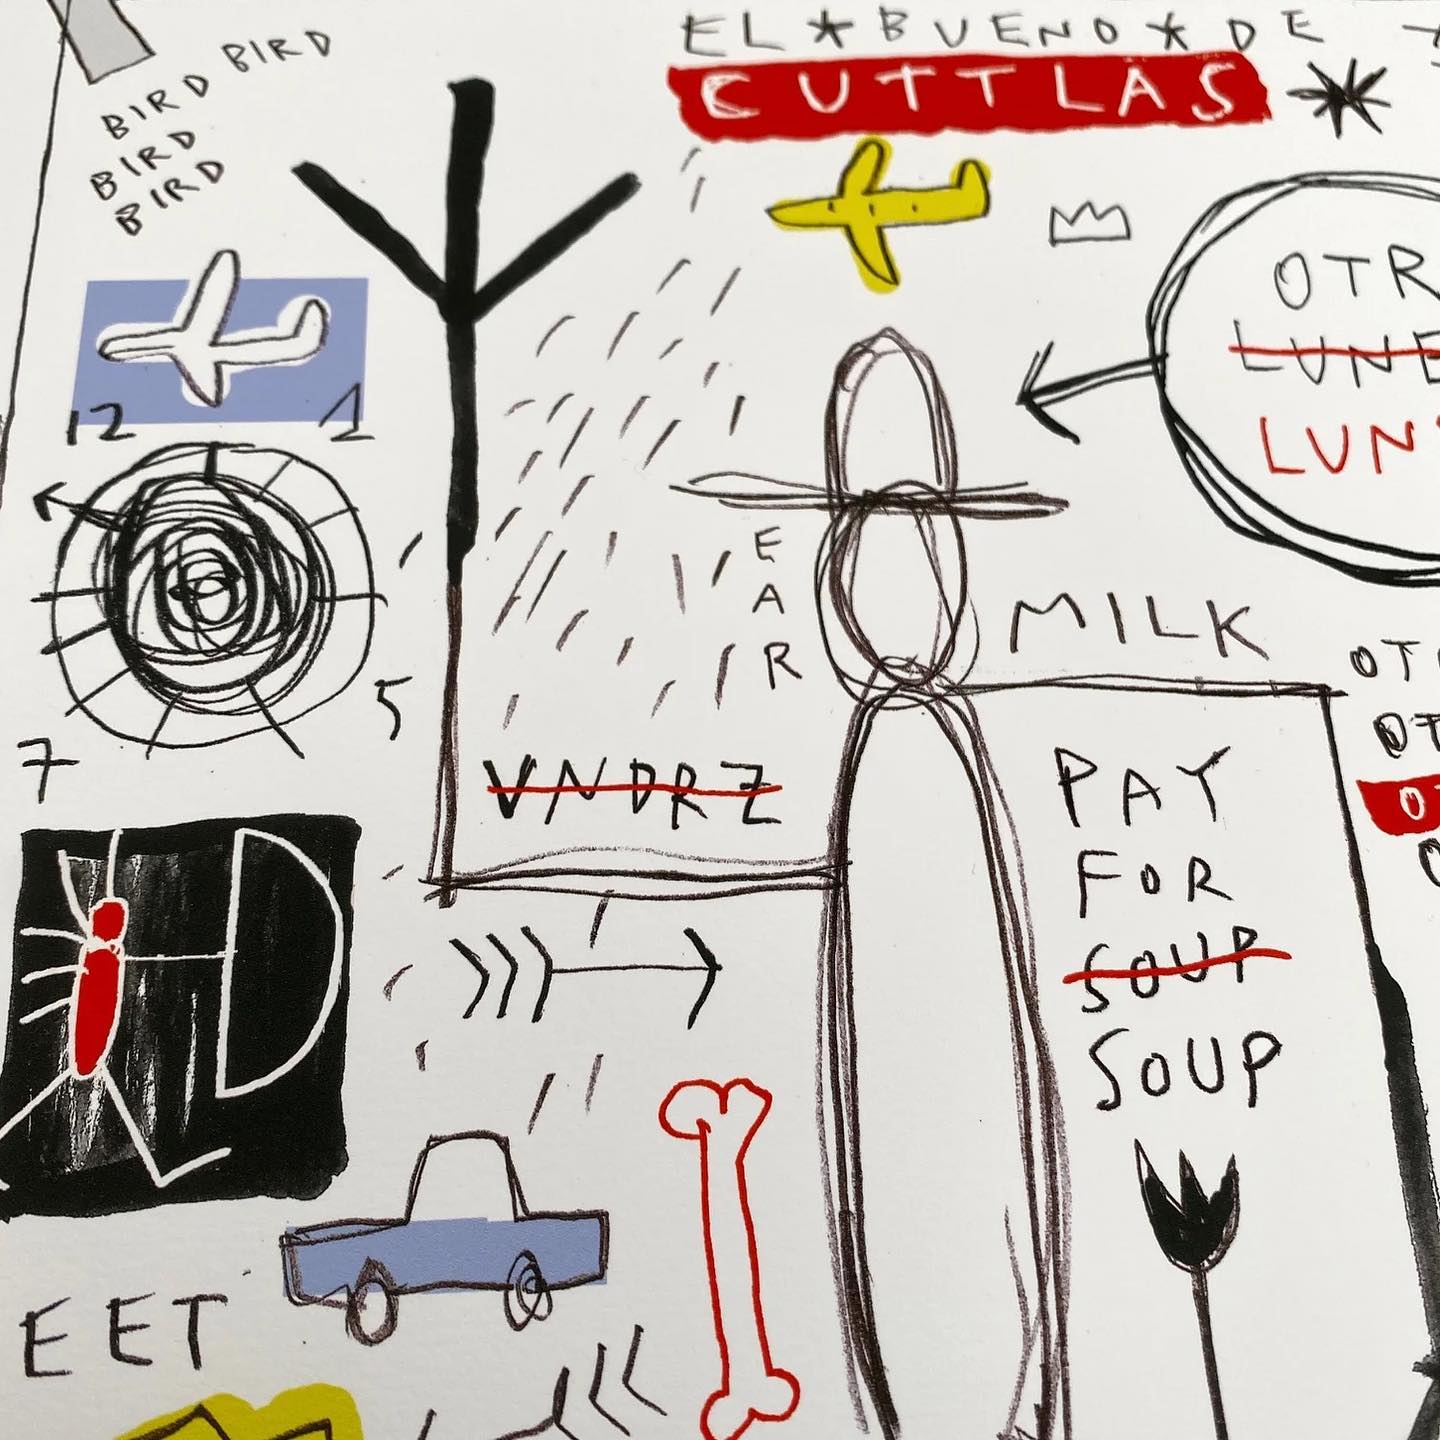 BIRD BIRD
BIRD
BIRD
EL * BUENO * DE
CUTTLAS
12 1
5
7
OTR
LUNE
LUN
EAR
MILK
VNDRZ
PAY
FOR
SOUP
SOUP
OT
OT
O
D
EET